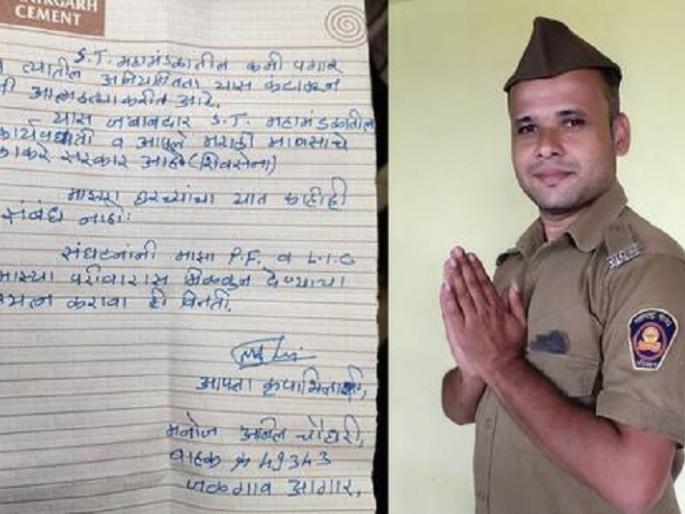 CEMENT
S.T. महामंडळातील कमी पगार
व त्यातील अनियमितता यास कंटाळून
मी आत्महत्या करीत आहे.
यास जबाबदार S.T. महामंडळातील
कार्यपध्दती व आपले मराठी माणसाचे
ठाकरे सरकार आहे (शिवसेना)
माझ्या घरच्यांचा यात काहीही
संबंध नाही.
संघटनांनी माझा P.F. व L.I.C
माझ्या परीवारास मिळवून देण्याचा
प्रयत्न करावा ही विनंती.
आपला कृपाभिलाषी,
मनोज अनिल चौधरी,
वाहक 49343
जळगाव आगार.